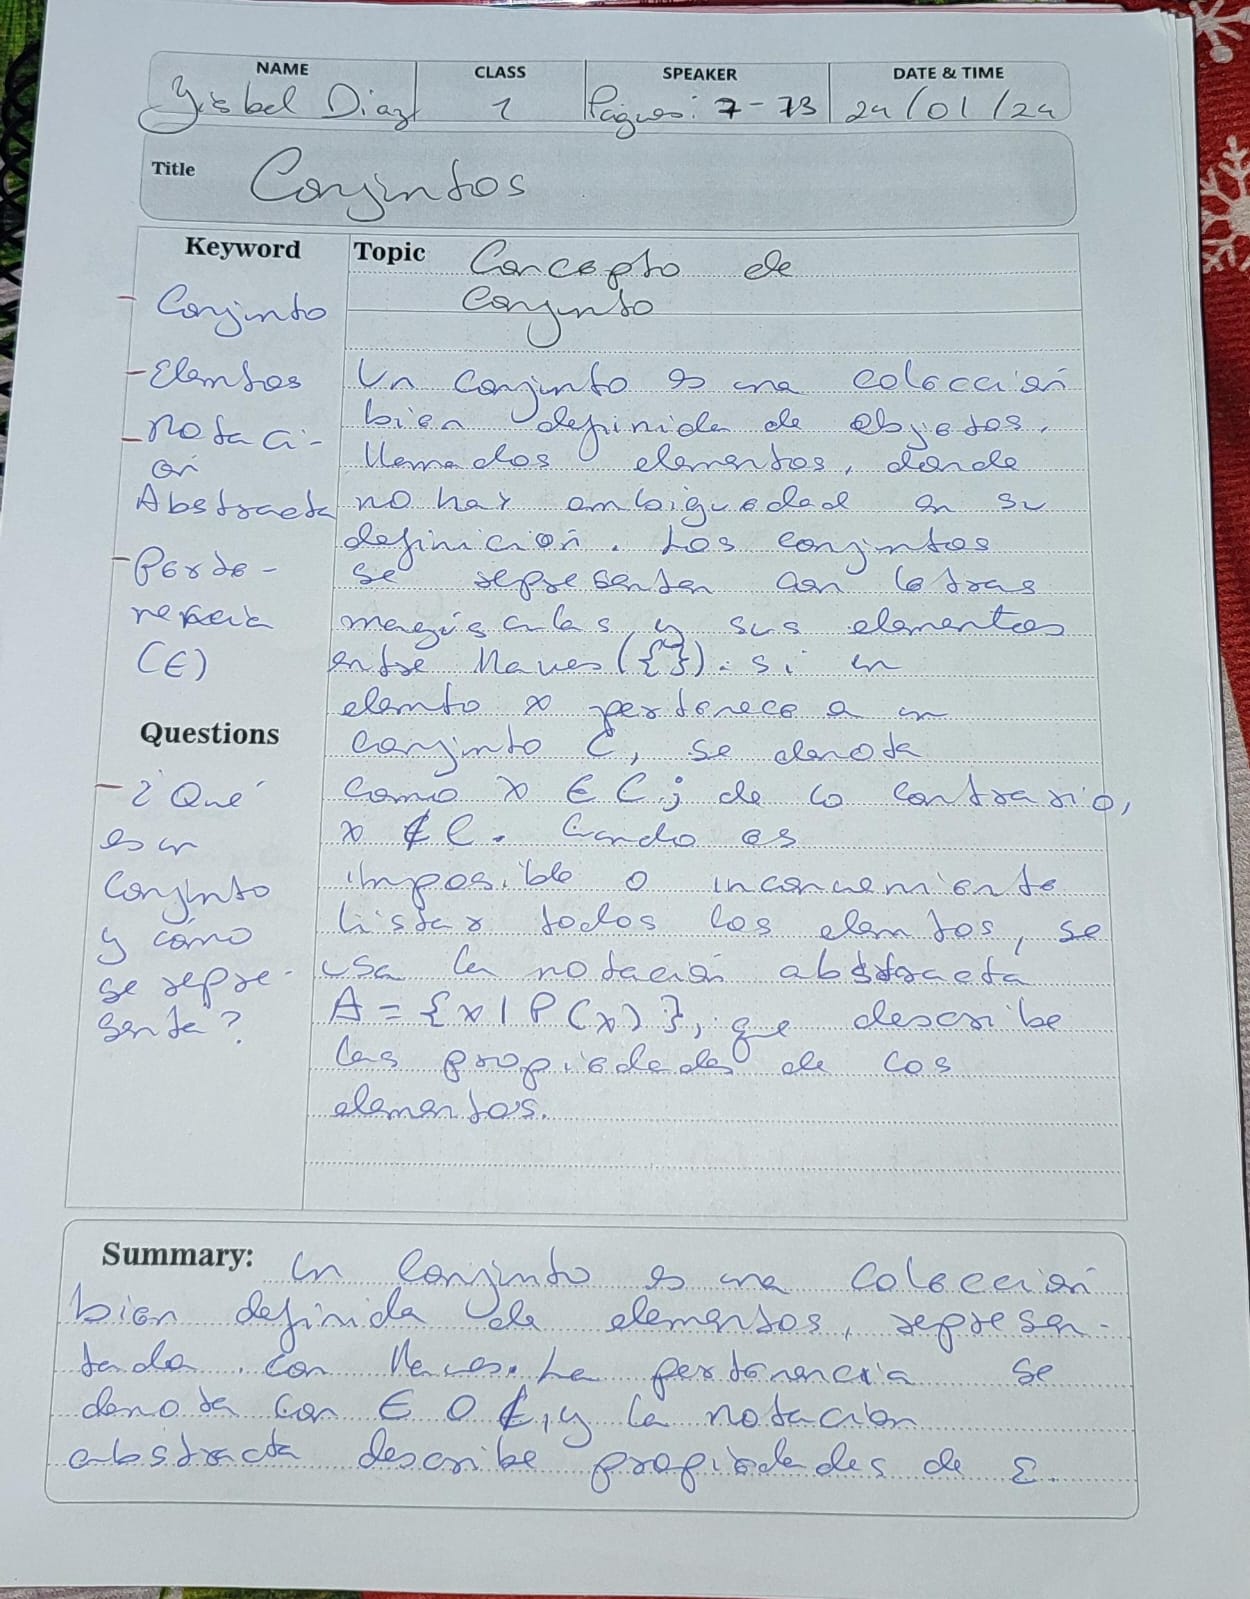 NAME CLASS SPEAKER DATE & TIME
Yisbel Diaz 1 Páginas: 7-73 24/01/24
Title Conjuntos
Keyword
- Conjunto
- Elemtos
- notaci-
ón
Abstracta
- Perte-
nencia
(∈)
Questions
- ¿Qué
es un
Conjunto
y cómo
se repre-
senta?
Topic Concepto de
Conjunto
Un conjunto es una colección
bien definida de objetos,
llamados elementos, donde
no hay ambiguedad en su
definición. Los conjuntos
se representan con letras
mayúsculas, y sus elementos
entre llaves ({}). Si un
elemto x pertenece a un
conjunto C, se denota
como x ∈ C; de lo contrario,
x ∉ C. Cuando es
imposible o inconveniente
listar todos los elemtos, se
usa la notación abstracta
A = {x | P(x)}, que describe
las propiedades de los
elementos.
Summary: Un Conjunto es una colección
bien definida de elementos, represen-
tada con llaves. La pertenencia se
denota con ∈ o ∉, y la notación
abstracta describe propiedades de Σ.